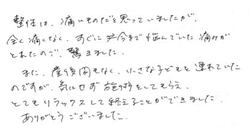 整体は、痛いものだと思っていましたが、
全く痛くなく、すぐに今まで悩んでいた痛みが
とれたので、驚きました。
また、産後間もなく、小さな子どもを連れていた
のですが、気にせず施術をしてもらえ、
とてもリラックスして終えることができました。
ありがとうございました。